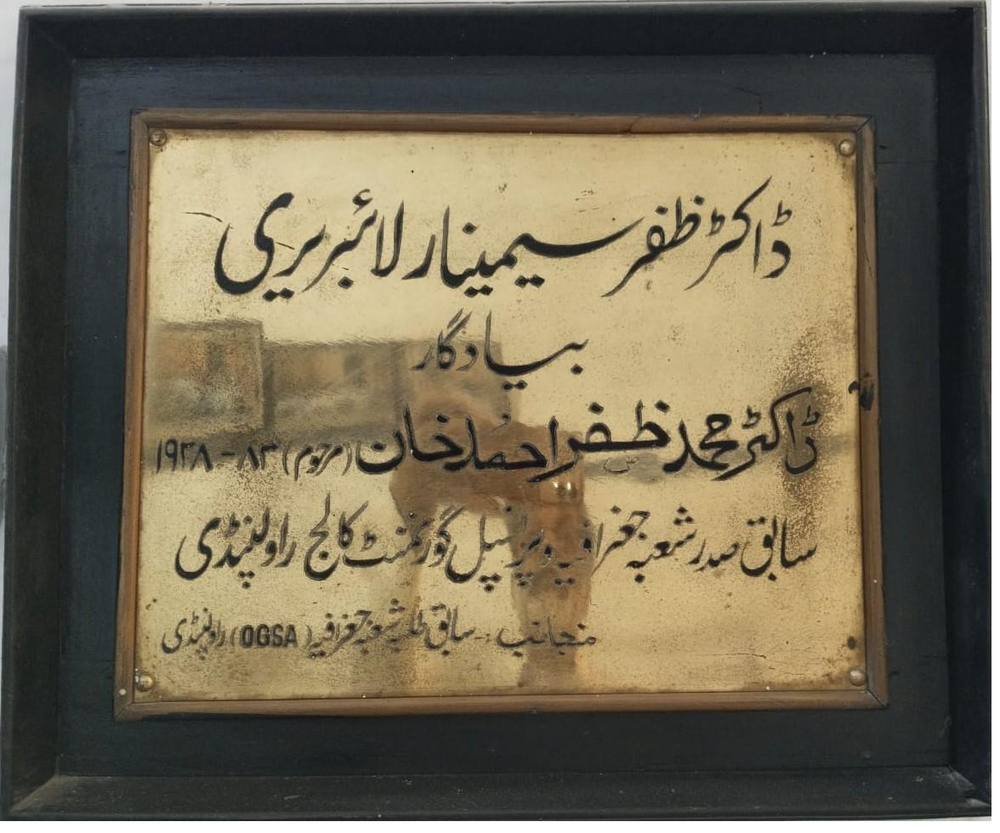 ڈاکٹر ظفر سیمینار لائبریری
بیادگار
ڈاکٹر محمد ظفر احمد خان (مرحوم) ۸۳ - ۱۹۲۸
سابق صدر شعبہ جغرافیہ و پرنسپل گورنمنٹ کالج راولپنڈی
منجانب - سابق طلبہ شعبہ جغرافیہ (OGSA) راولپنڈی